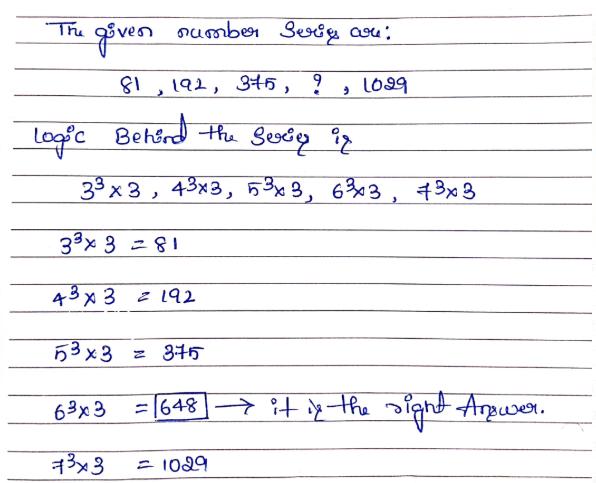 The given number Series are:
81, 192, 375, ?, 1029
Logic Behind the Series is
3³×3, 4³×3, 5³×3, 6³×3, 7³×3
3³×3 = 81
4³×3 = 192
5³×3 = 375
6³×3 = 648 → it is the right Answer.
7³×3 = 1029